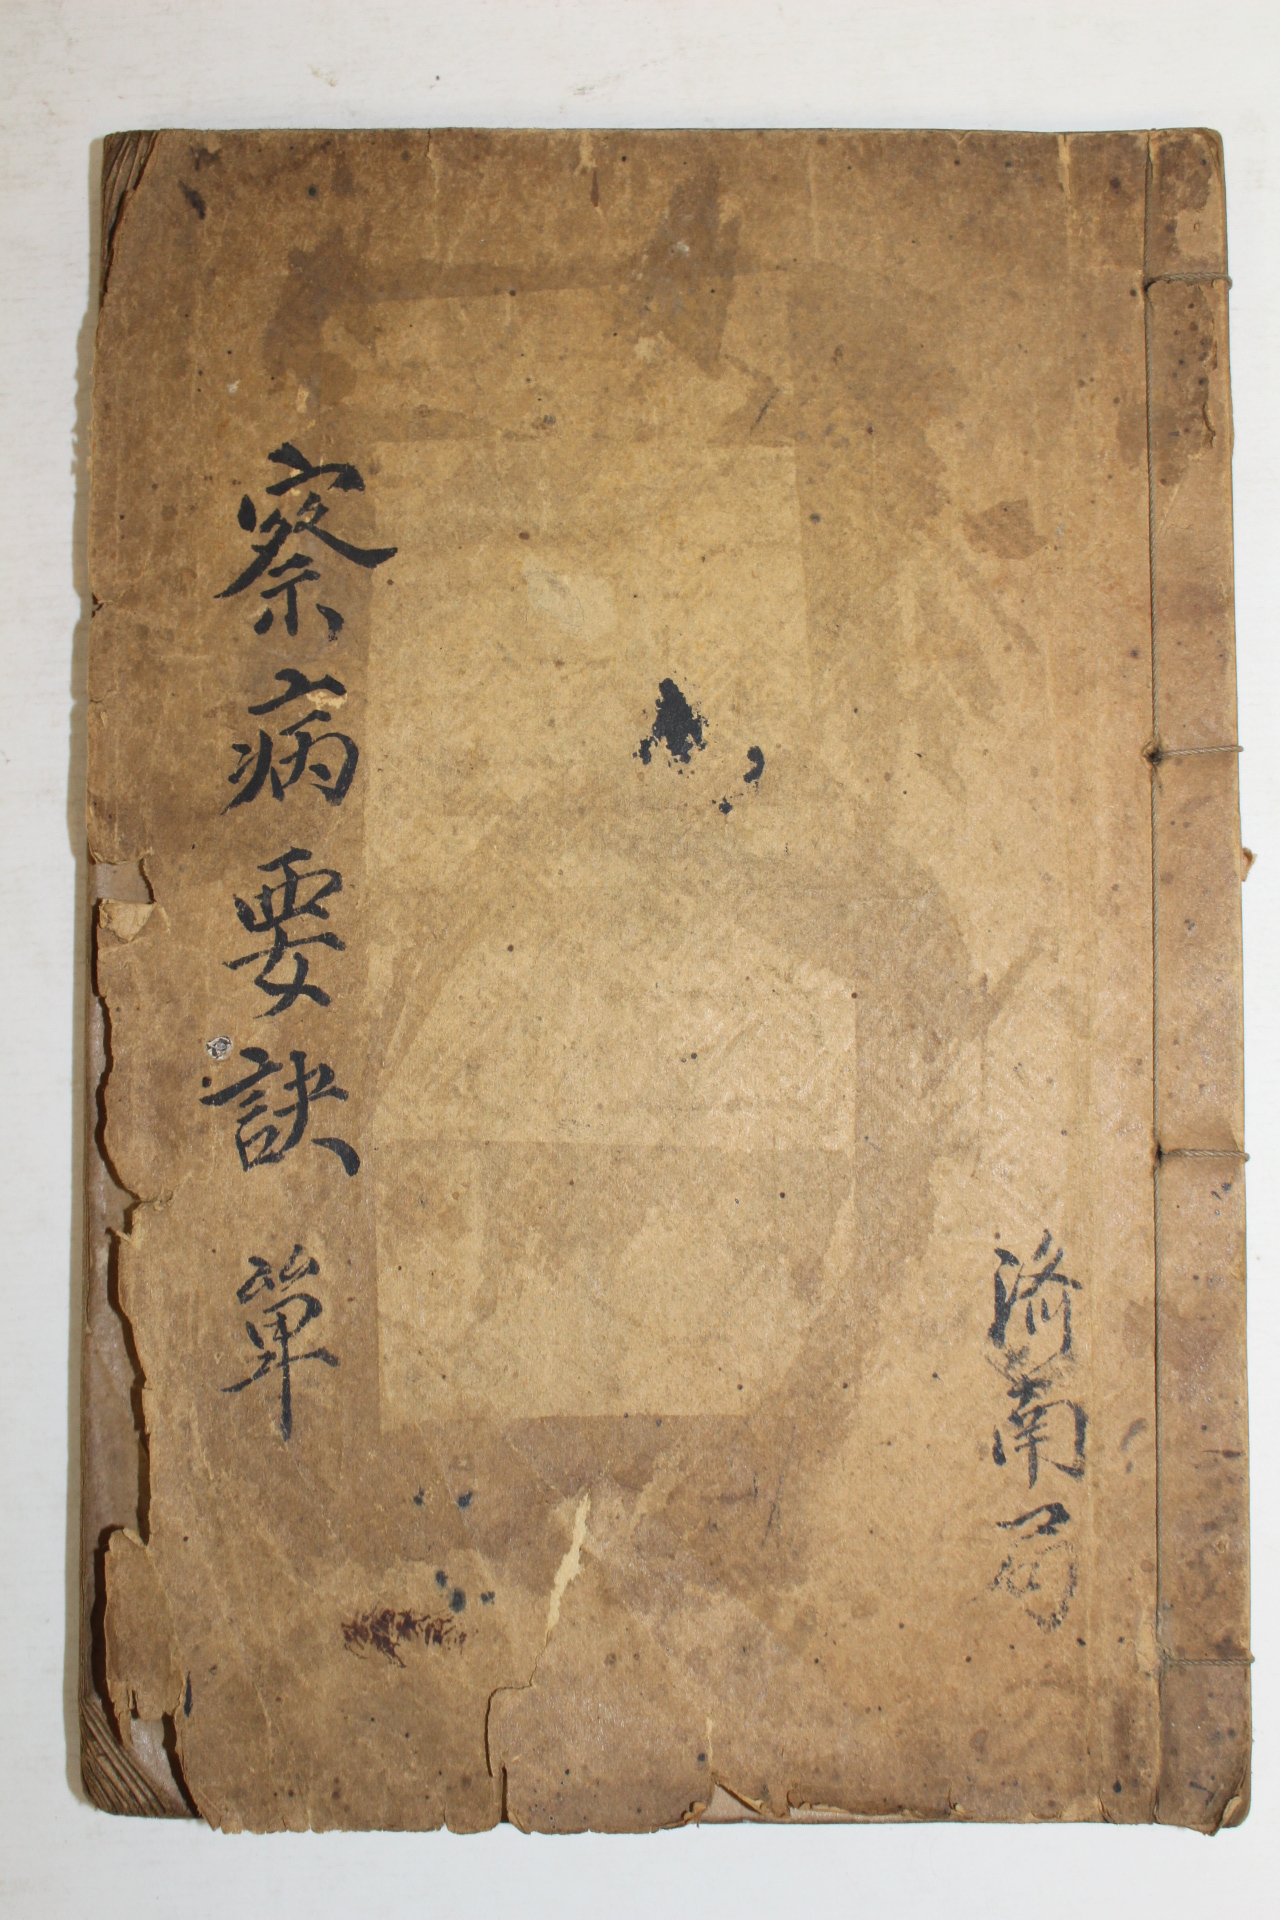 察病要訣 單
濟南局